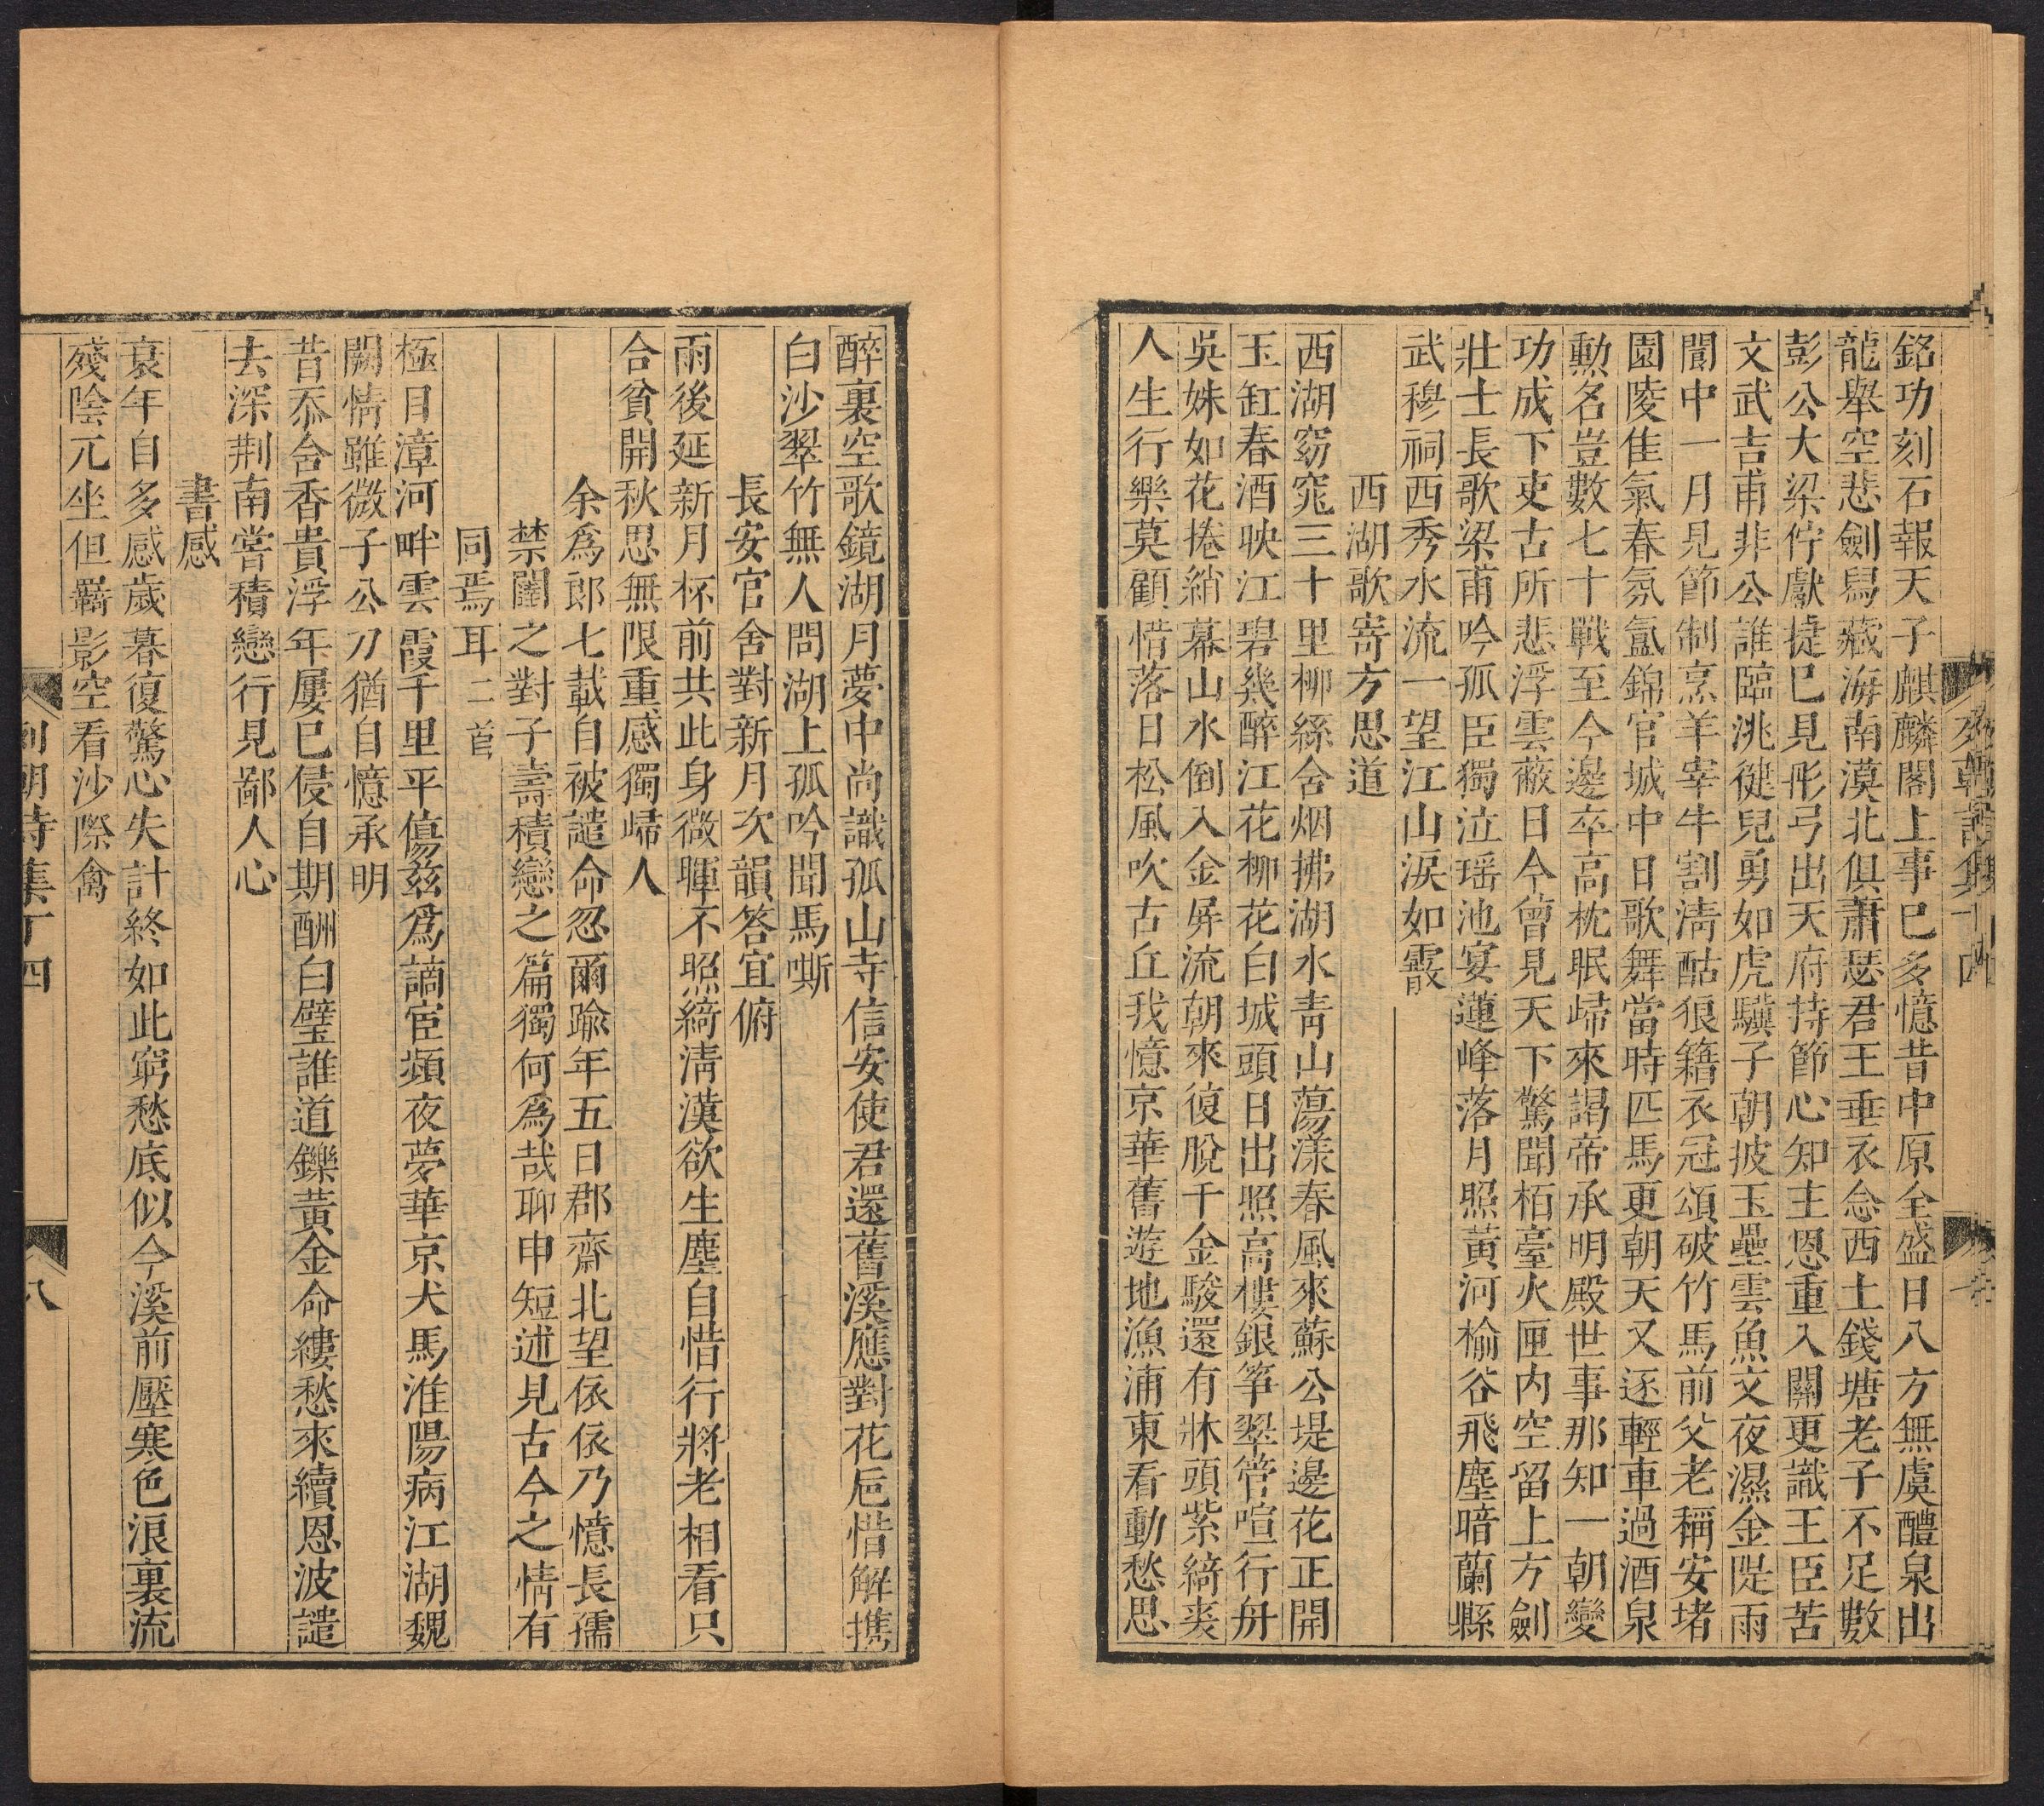 銘功刻石報天子麒麟閣上事已多憶昔中原全盛日八方無虞醴泉出
龍舉空悲劍舄藏海南漠北俱蕭瑟君王垂衣念西土錢塘老子不足數
彭公大梁佇獻捷已見彤弓出天府持節心知主恩重入關更識王臣苦
文武吉甫非公誰臨洮健兒勇如虎驥子朝披玉壘雲魚文夜濕金隄雨
閬中一月見節制烹羊宰牛割淸酤狼籍衣冠頌破竹馬前父老稱安堵
園陵佳氣春氛氳錦官城中日歌舞當時匹馬更朝天又逐輕車過酒泉
勲名豈數七十戰至今邊卒高枕眠歸來謁帝承明殿世事那知一朝變
功成下吏古所悲浮雲蔽日今曾見天下驚聞栢臺火匣内空留上方劍
壯士長歌梁甫吟孤臣獨泣瑶池宴蓮峰落月照黃河榆谷飛塵暗蘭縣
武穆祠西秀水流一望江山淚如霰
西湖歌寄方思道
西湖窈窕三十里柳絲含烟拂湖水靑山蕩漾春風來蘇公堤邊花正開
玉缸春酒映江碧幾醉江花柳花白城頭日出照高樓銀筝翠管喧行舟
吳姝如花捲綃幕山水倒入金屏流朝來復脫千金駿還有牀頭紫綺裘
人生行樂莫顧惜落日松風吹古丘我憶京華舊遊地漁浦東看動愁思
醉裏空歌鏡湖月夢中尚識孤山寺信安使君還舊溪應對花巵惜解携
白沙翠竹無人問湖上孤吟聞馬嘶
長安官舍對新月次韻答宜俯
雨後延新月杯前共此身微暉不照綺淸漢欲生塵自惜行將老相看只
合貧開秋思無限重感獨歸人
余爲郎七載自被譴命忽爾踰年五日郡齋北望依依乃憶長孺
禁闥之對子壽積戀之篇獨何爲哉聊申短述見古今之情有
同焉耳二首
極目漳河畔雲霞千里平傷兹爲謫宦頻夜夢華京犬馬淮陽病江湖魏
闕情雖微子公刀猶自憶承明
昔忝含香貴浮年屢已侵自期酬白璧誰道鑠黃金命縷愁來續恩波譴
去深荆南嘗積戀行見鄙人心
書感
衰年自多感歲暮復驚心失計終如此窮愁底似今溪前壓寒色浪裏流
殘陰兀坐但羇影空看沙際禽
列朝詩集丁四
八